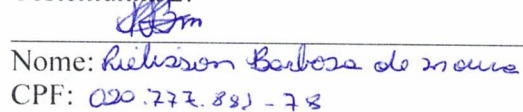 Nome: Rielisson Barbosa de moura
CPF: 020.777.881-78